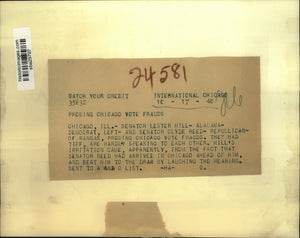 24581
WATCH YOUR CREDIT INTERNATIONAL CHICAGO
10 - 17 - 40
PROBING CHICAGO VOTE FRAUDS
CHICAGO, ILL.- SENATOR LESTER HILL- ALABAMA-
DEMOCRAT, LEFT- AND SENATOR CLYDE REED- REPUBLICAN-
OF KANSAS, PROBING CHICAGO VOTE FRAUDS. THEY HAD
TIFF, ARE HARDLY SPEAKING TO EACH OTHER. HILL'S
IRRITATION CAME, APPARENTLY, FROM THE FACT THAT
SENATOR REED HAD ARRIVED IN CHICAGO AHEAD OF HIM,
AND BEAT HIM TO THE DRAW BY LAUGHING THE HEARING.
SENT TO A AND D LIST. -HA-